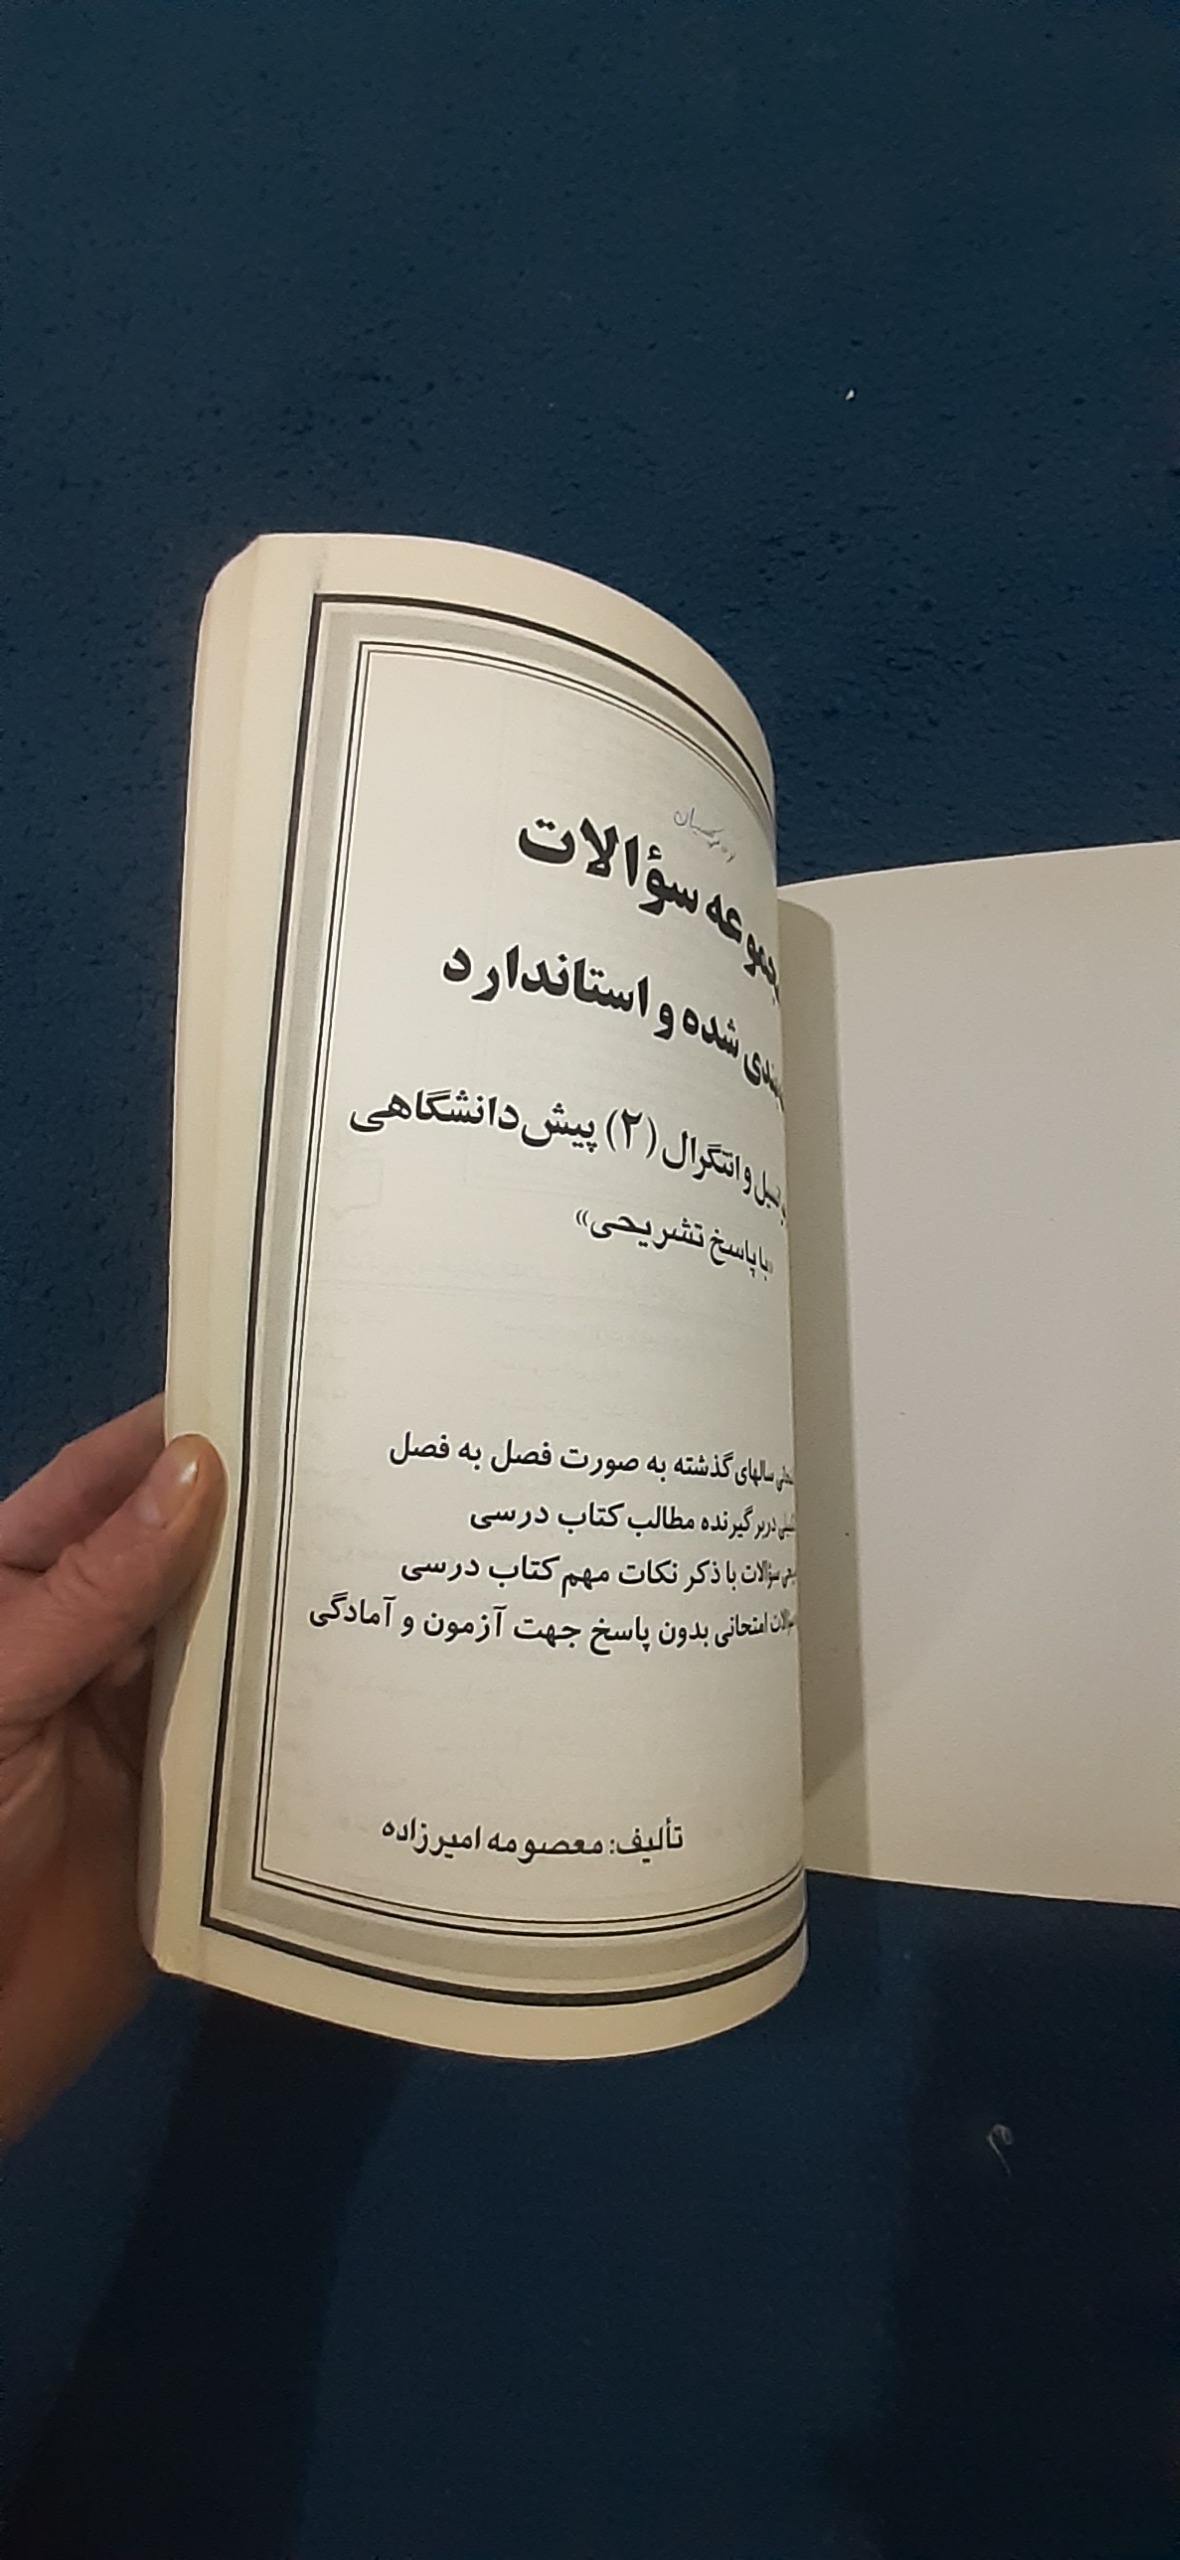 سؤالات
شده و استاندارد
و انتگرال (۲) پیش‌دانشگاهی
«با پاسخ تشریحی»
سالهای گذشته به صورت فصل به فصل
دربرگیرنده مطالب کتاب درسی
سؤالات با ذکر نکات مهم کتاب درسی
امتحانی بدون پاسخ جهت آزمون و آمادگی
تألیف: معصومه امیرزاده